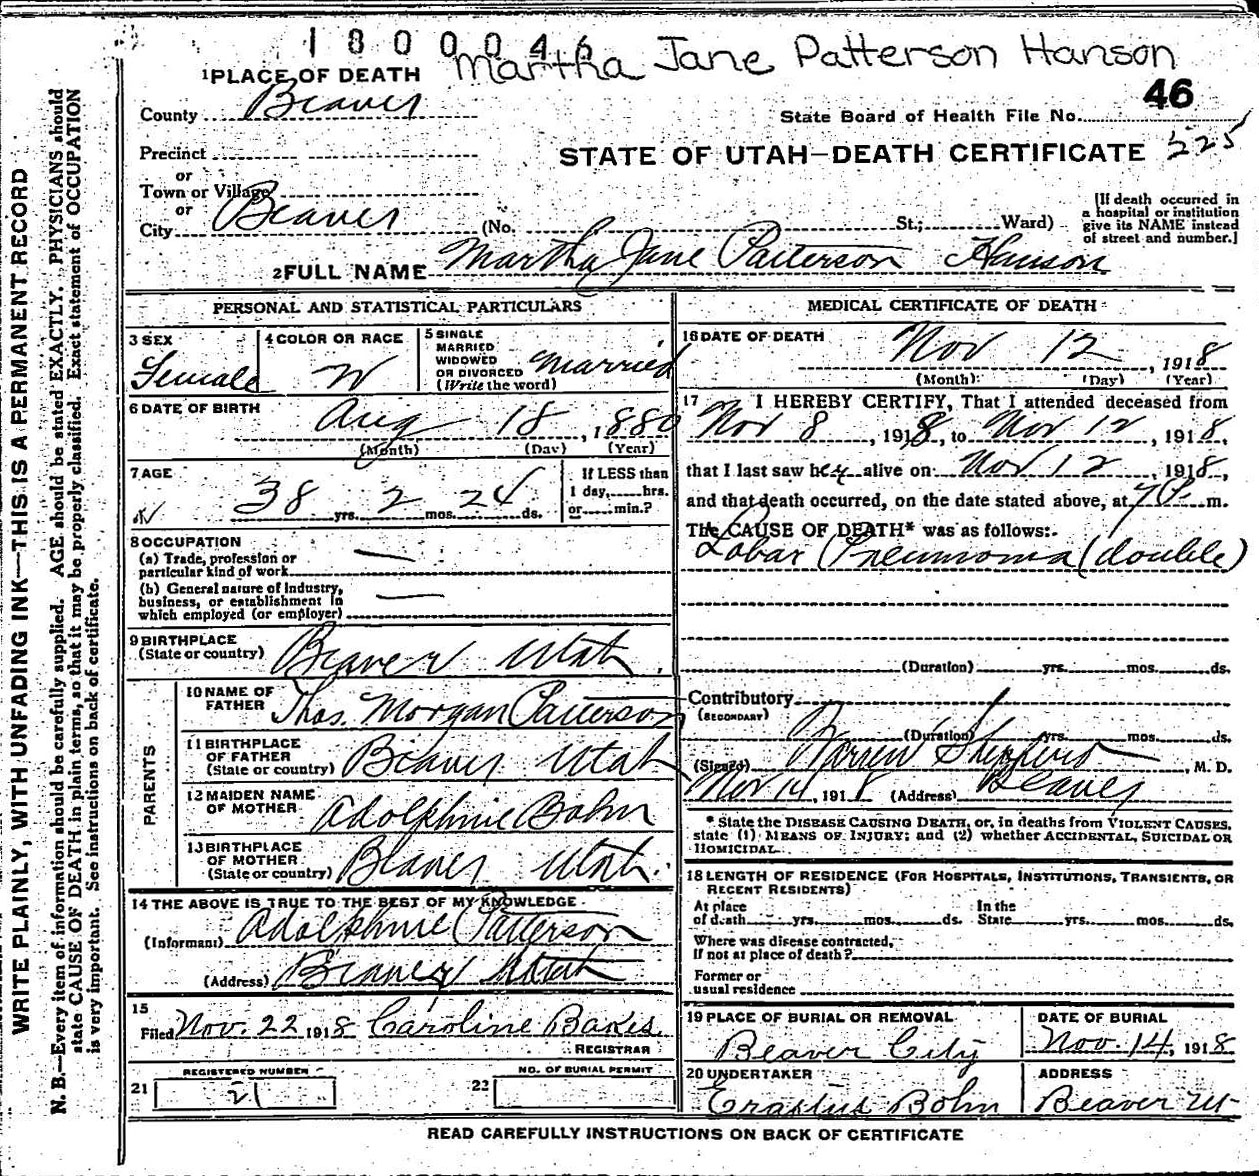 1800046
Martha Jane Patterson Hanson
1 PLACE OF DEATH
County Beaver
46
State Board of Health File No.
Precinct
or
STATE OF UTAH—DEATH CERTIFICATE 225
Town or Village
or
City Beaver (No. St.; Ward)
[If death occurred in
a hospital or institution
give its NAME instead
of street and number.]
2 FULL NAME Martha Jane Patterson Hanson
PERSONAL AND STATISTICAL PARTICULARS
3 SEX
Female
4 COLOR OR RACE
W
5 SINGLE
MARRIED
WIDOWED
OR DIVORCED
(Write the word)
Married
6 DATE OF BIRTH
Aug 18, 1880
(Month) (Day) (Year)
7 AGE
38 yrs. 2 mos. 24 ds.
If LESS than
1 day, hrs.
or min.?
8 OCCUPATION
(a) Trade, profession or
particular kind of work
(b) General nature of industry,
business, or establishment in
which employed (or employer)
9 BIRTHPLACE
(State or country) Beaver Utah.
PARENTS
10 NAME OF
FATHER Thos. Morgan Patterson
11 BIRTHPLACE
OF FATHER
(State or country) Beaver Utah
12 MAIDEN NAME
OF MOTHER Adolphnie Bohn
13 BIRTHPLACE
OF MOTHER
(State or country) Beaver Utah.
14 THE ABOVE IS TRUE TO THE BEST OF MY KNOWLEDGE
(Informant) Adolphnie Patterson
(Address) Beaver Utah
15
Filed Nov. 22 1918 Caroline Bakes.
REGISTRAR
21 REGISTERED NUMBER
21
22 NO. OF BURIAL PERMIT
MEDICAL CERTIFICATE OF DEATH
16 DATE OF DEATH
Nov 12, 1918
(Month) (Day) (Year)
17 I HEREBY CERTIFY, That I attended deceased from
Nov 8, 1918, to Nov 12, 1918,
that I last saw her alive on Nov 12, 1918,
and that death occurred, on the date stated above, at 7 P. m.
The CAUSE OF DEATH* was as follows:
Lobar Pneumonia (double)
(Duration) yrs. mos. ds.
Contributory
(SECONDARY)
(Duration) yrs. mos. ds.
(Signed) Warren Shepherd, M. D.
Nov 14, 1918 (Address) Beaver
* State the DISEASE CAUSING DEATH, or, in deaths from VIOLENT CAUSES,
state (1) MEANS OF INJURY; and (2) whether ACCIDENTAL, SUICIDAL OR
HOMICIDAL.
18 LENGTH OF RESIDENCE (FOR HOSPITALS, INSTITUTIONS, TRANSIENTS, OR
RECENT RESIDENTS)
At place
of death yrs. mos. ds.
In the
State yrs. mos. ds.
Where was disease contracted,
If not at place of death?
Former or
usual residence
19 PLACE OF BURIAL OR REMOVAL
Beaver City
DATE OF BURIAL
Nov. 14, 1918
20 UNDERTAKER
Erastus Bohn
ADDRESS
Beaver Ut
READ CAREFULLY INSTRUCTIONS ON BACK OF CERTIFICATE
WRITE PLAINLY, WITH UNFADING INK—THIS IS A PERMANENT RECORD
N. B.—Every item of information should be carefully supplied. AGE should be stated EXACTLY. PHYSICIANS should
state CAUSE OF DEATH in plain terms, so that it may be properly classified. Exact statement of OCCUPATION
is very important. See instructions on back of certificate.